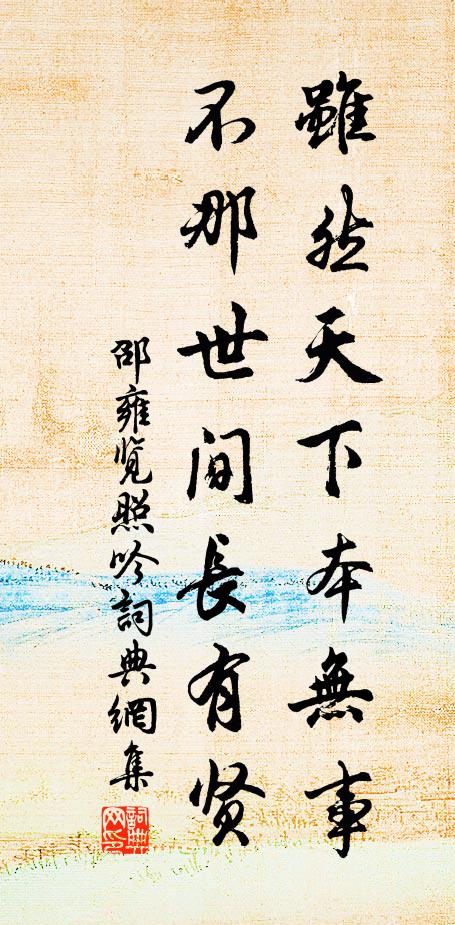 雖然天下本無事
不那世間長有贤
邵雍覽照吟詞典網集